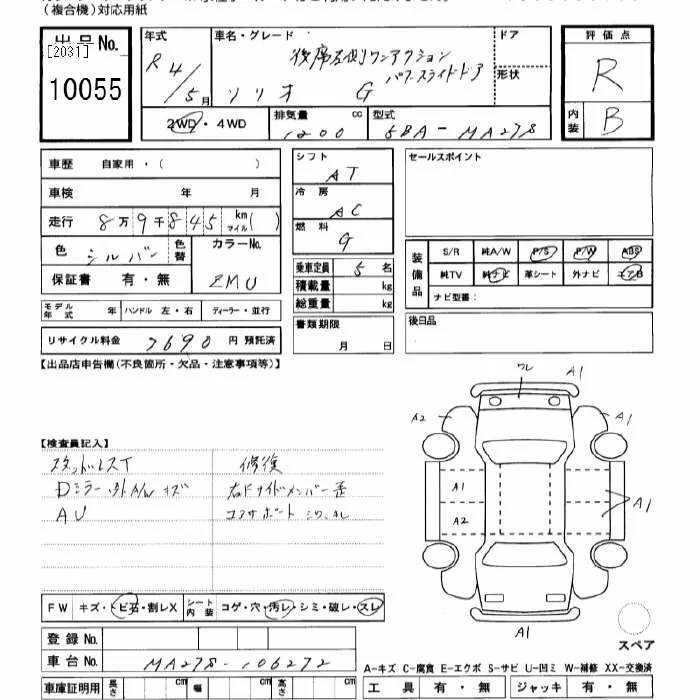 (複合機)対応用紙
出品No.
[2031]
10055
年式
R4/5月
車名・グレード
後席左側ワンアクション
パワースライドドア
ソリオ G
ドア
形状
2WD・4WD
排気量 1200 cc
型式 5BA-MA27S
評価点
R
内装 B
車歴 自家用・( )
車検 年 月
走行 8万9千845 km マイル( )
色 シルバー
色替
カラーNo.
ZMU
保証書 有・無
モデル年式 年 ハンドル 左・右 ディーラー・並行
リサイクル料金 7690 円 預託済
シフト
AT
冷房
AC
燃料
G
乗車定員 5 名
積載量 kg
総重量 kg
書類期限
月 日
セールスポイント
装備品
S/R 純A/W P/S P/W ABS
純TV 純ナビ 革シート 外ナビ エアB
ナビ型番:
後日品
【出品店申告欄(不良箇所・欠品・注意事項等)】
【検査員記入】
スタッドレスT
Dミラー 外A/W キズ
AU
修復
右Fサイドメンバー歪
コアサポート
ワレ
A1
A2
A1
A1
A2
A1
A1
FW キズ・トビ石・割レX シート内装 コゲ・穴・汚レ・シミ・破レ・スレ
登録No.
車台No. MA27S-106272
車庫証明用 長さ cm 幅 cm 高さ cm
スペア
A-キズ C-腐食 E-エクボ S-サビ U-凹ミ W-補修 XX-交換済
工具 有・無 ジャッキ 有・無